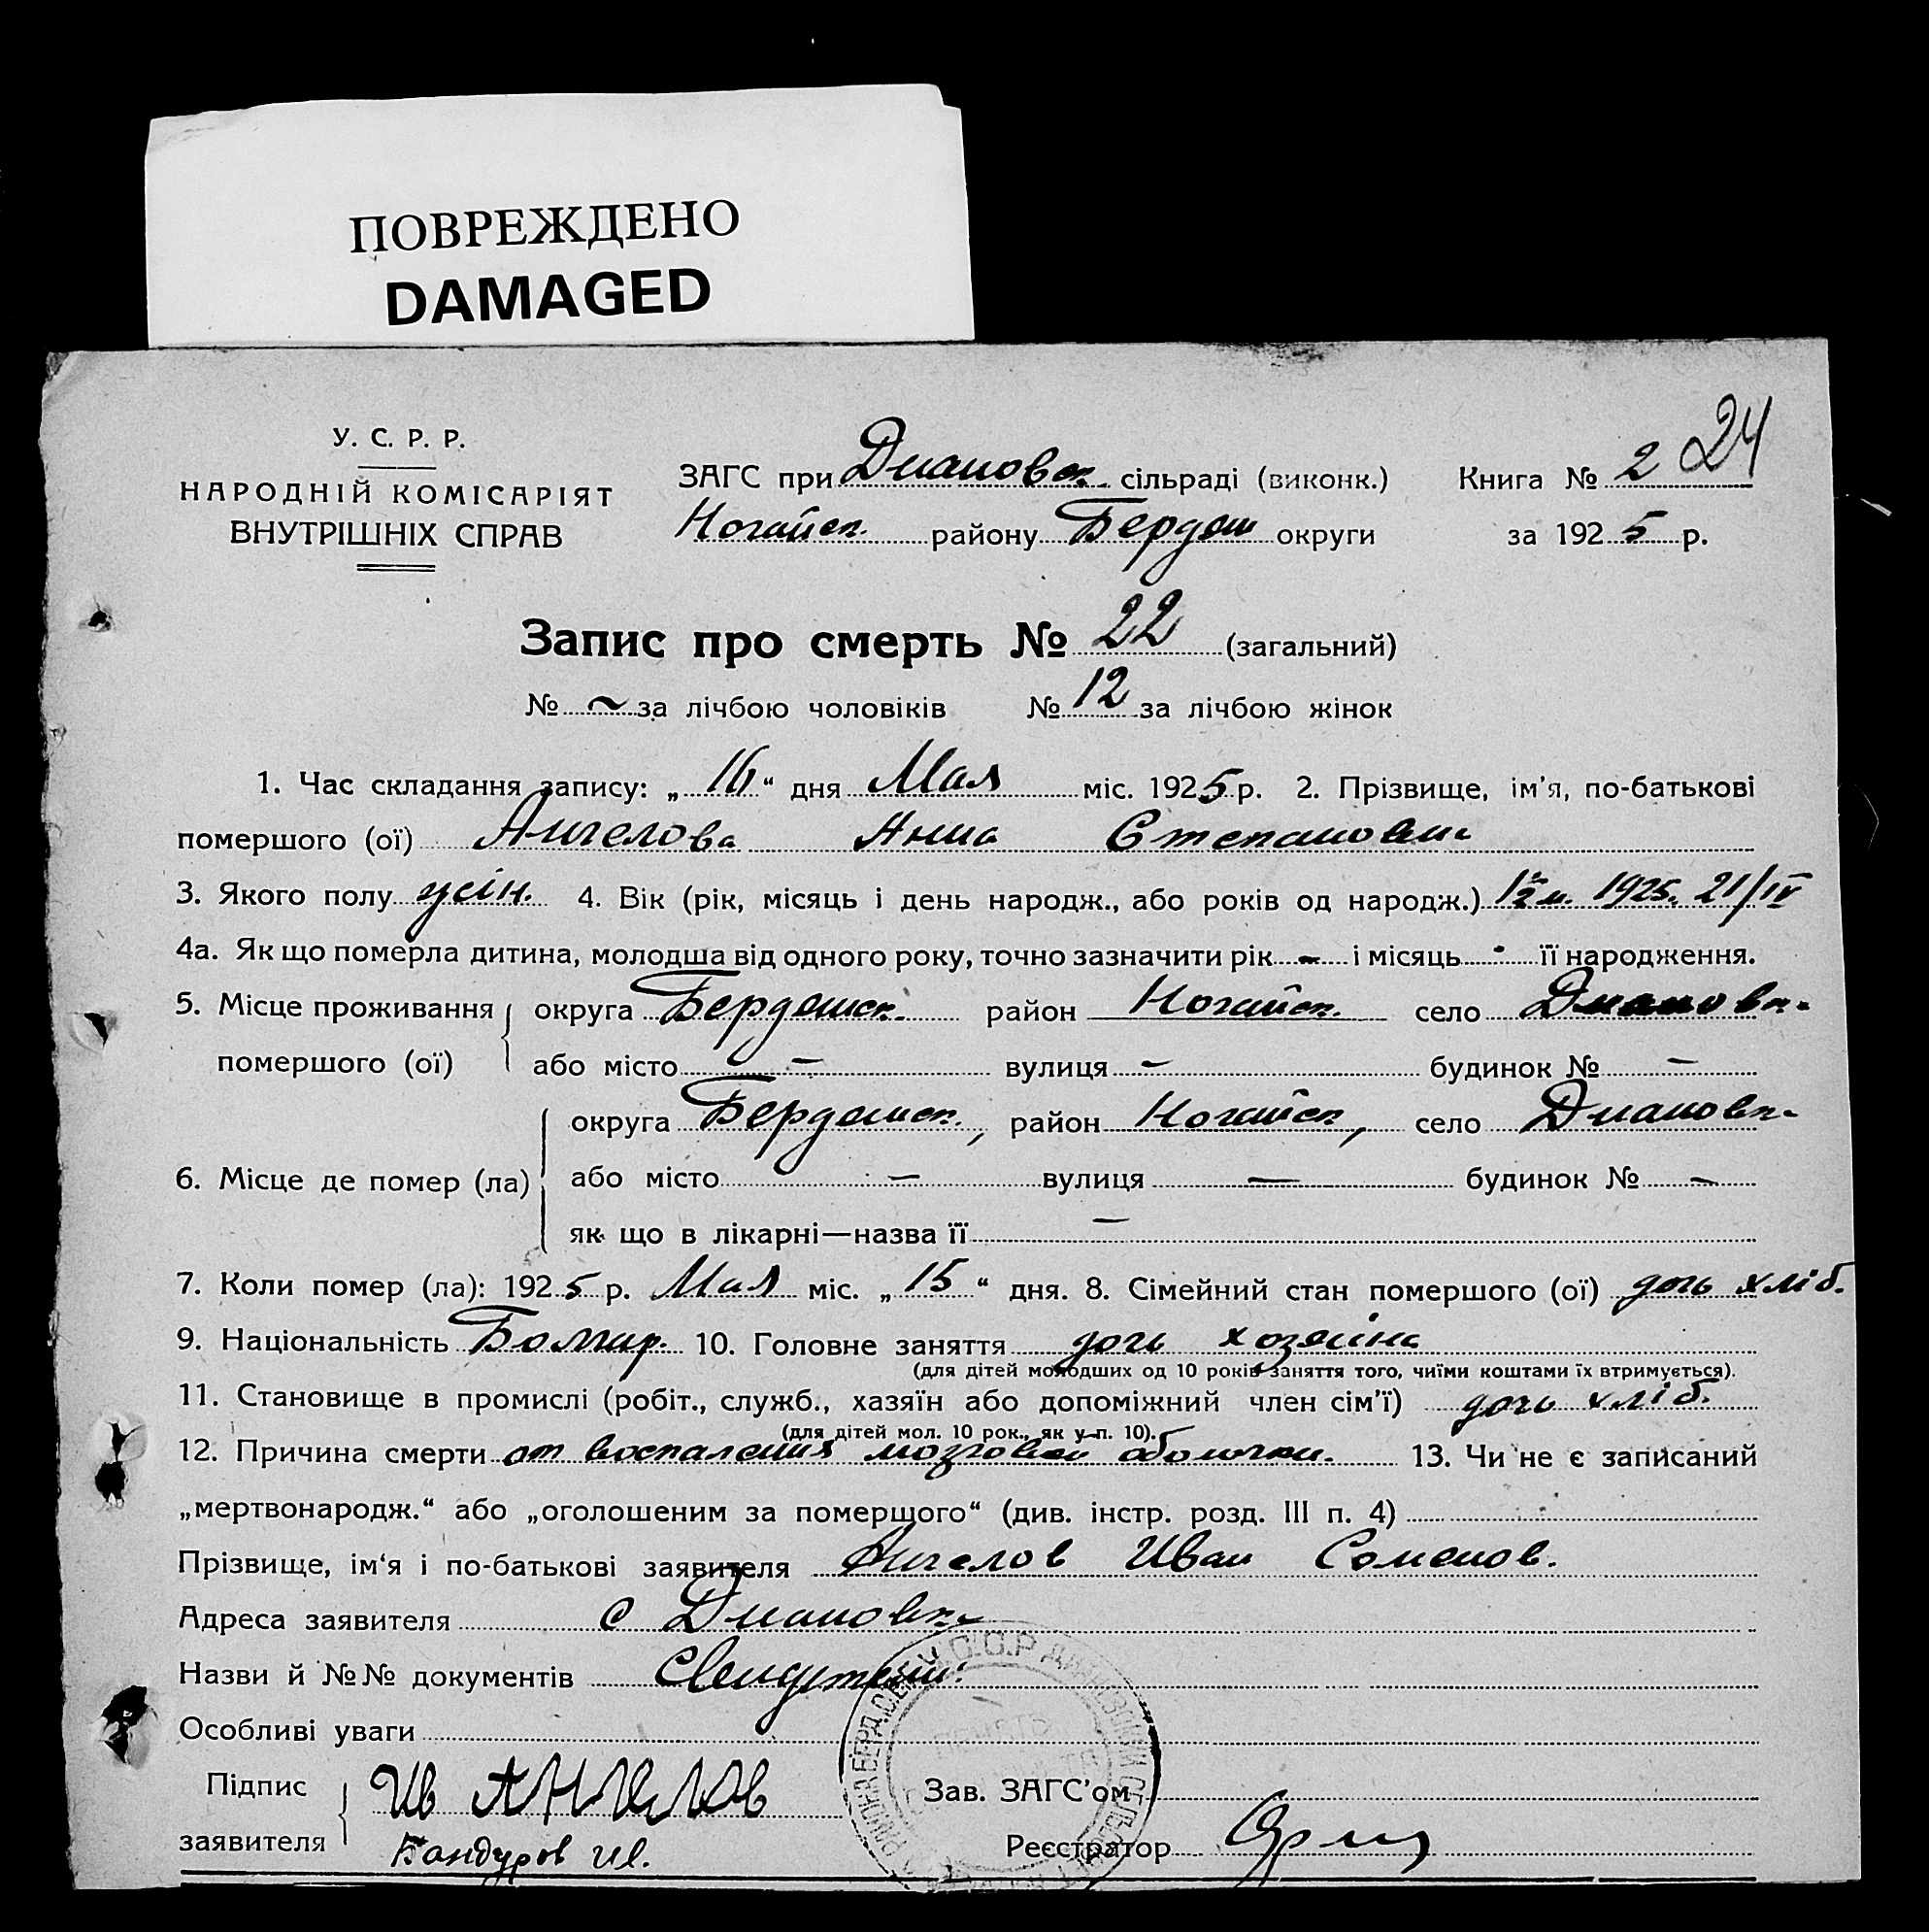 ПОВРЕЖДЕНО
DAMAGED
24
У. С. Р. Р.
НАРОДНІЙ КОМІСАРІЯТ
ВНУТРІШНІХ СПРАВ
ЗАГС при Диановск. сільраді (виконк.) Книга № 2
Ногайск. району Бердян округи за 1925 р.
Запис про смерть № 22 (загальний)
№ ~ за лічбою чоловіків № 12 за лічбою жінок
1. Час складання запису: „16“ дня Мая міс. 1925 р. 2. Прізвище, ім’я, по-батькові
помершого (ої) Ангелова Анна Степановна
3. Якого полу жін. 4. Вік (рік, місяць і день народж., або років од народж.) 1925. 21/IV
4а. Як що померла дитина, молодша від одного року, точно зазначити рік - і місяць - її народження.
5. Місце проживання округа Бердянск. район Ногайск. село Диановка
помершого (ої) або місто – вулиця – будинок № –
округа Бердянск., район Ногайск, село Диановка
6. Місце де помер (ла) або місто – вулиця — будинок № –
як що в лікарні—назва її –
7. Коли помер (ла): 1925 р. Мая міс. „15“ дня. 8. Сімейний стан помершого (ої) дочь хліб.
9. Національність Болгар. 10. Головне заняття дочь хозяїна
(для дітей молодших од 10 років заняття того, чиїми коштами їх втримується).
11. Становище в промислі (робіт., служб., хазяїн або допоміжний член сім’ї) дочь хліб.
(для дітей мол. 10 рок., як у п. 10).
12. Причина смерти от воспаления мозговой оболочки. 13. Чи не є записаний
„мертвонародж.“ або „оголошеним за померщого“ (див. інстр. розд. III п. 4)
Прізвище, ім‘я і по-батькові заявителя Ангелов Иван Семенов.
Адреса заявителя с Диановка
Назви й №№ документів
Особливі уваги
Підпис Ив Ангелов Зав. ЗАГС’ом
заявителя Бандуров Ив. Реєстратор